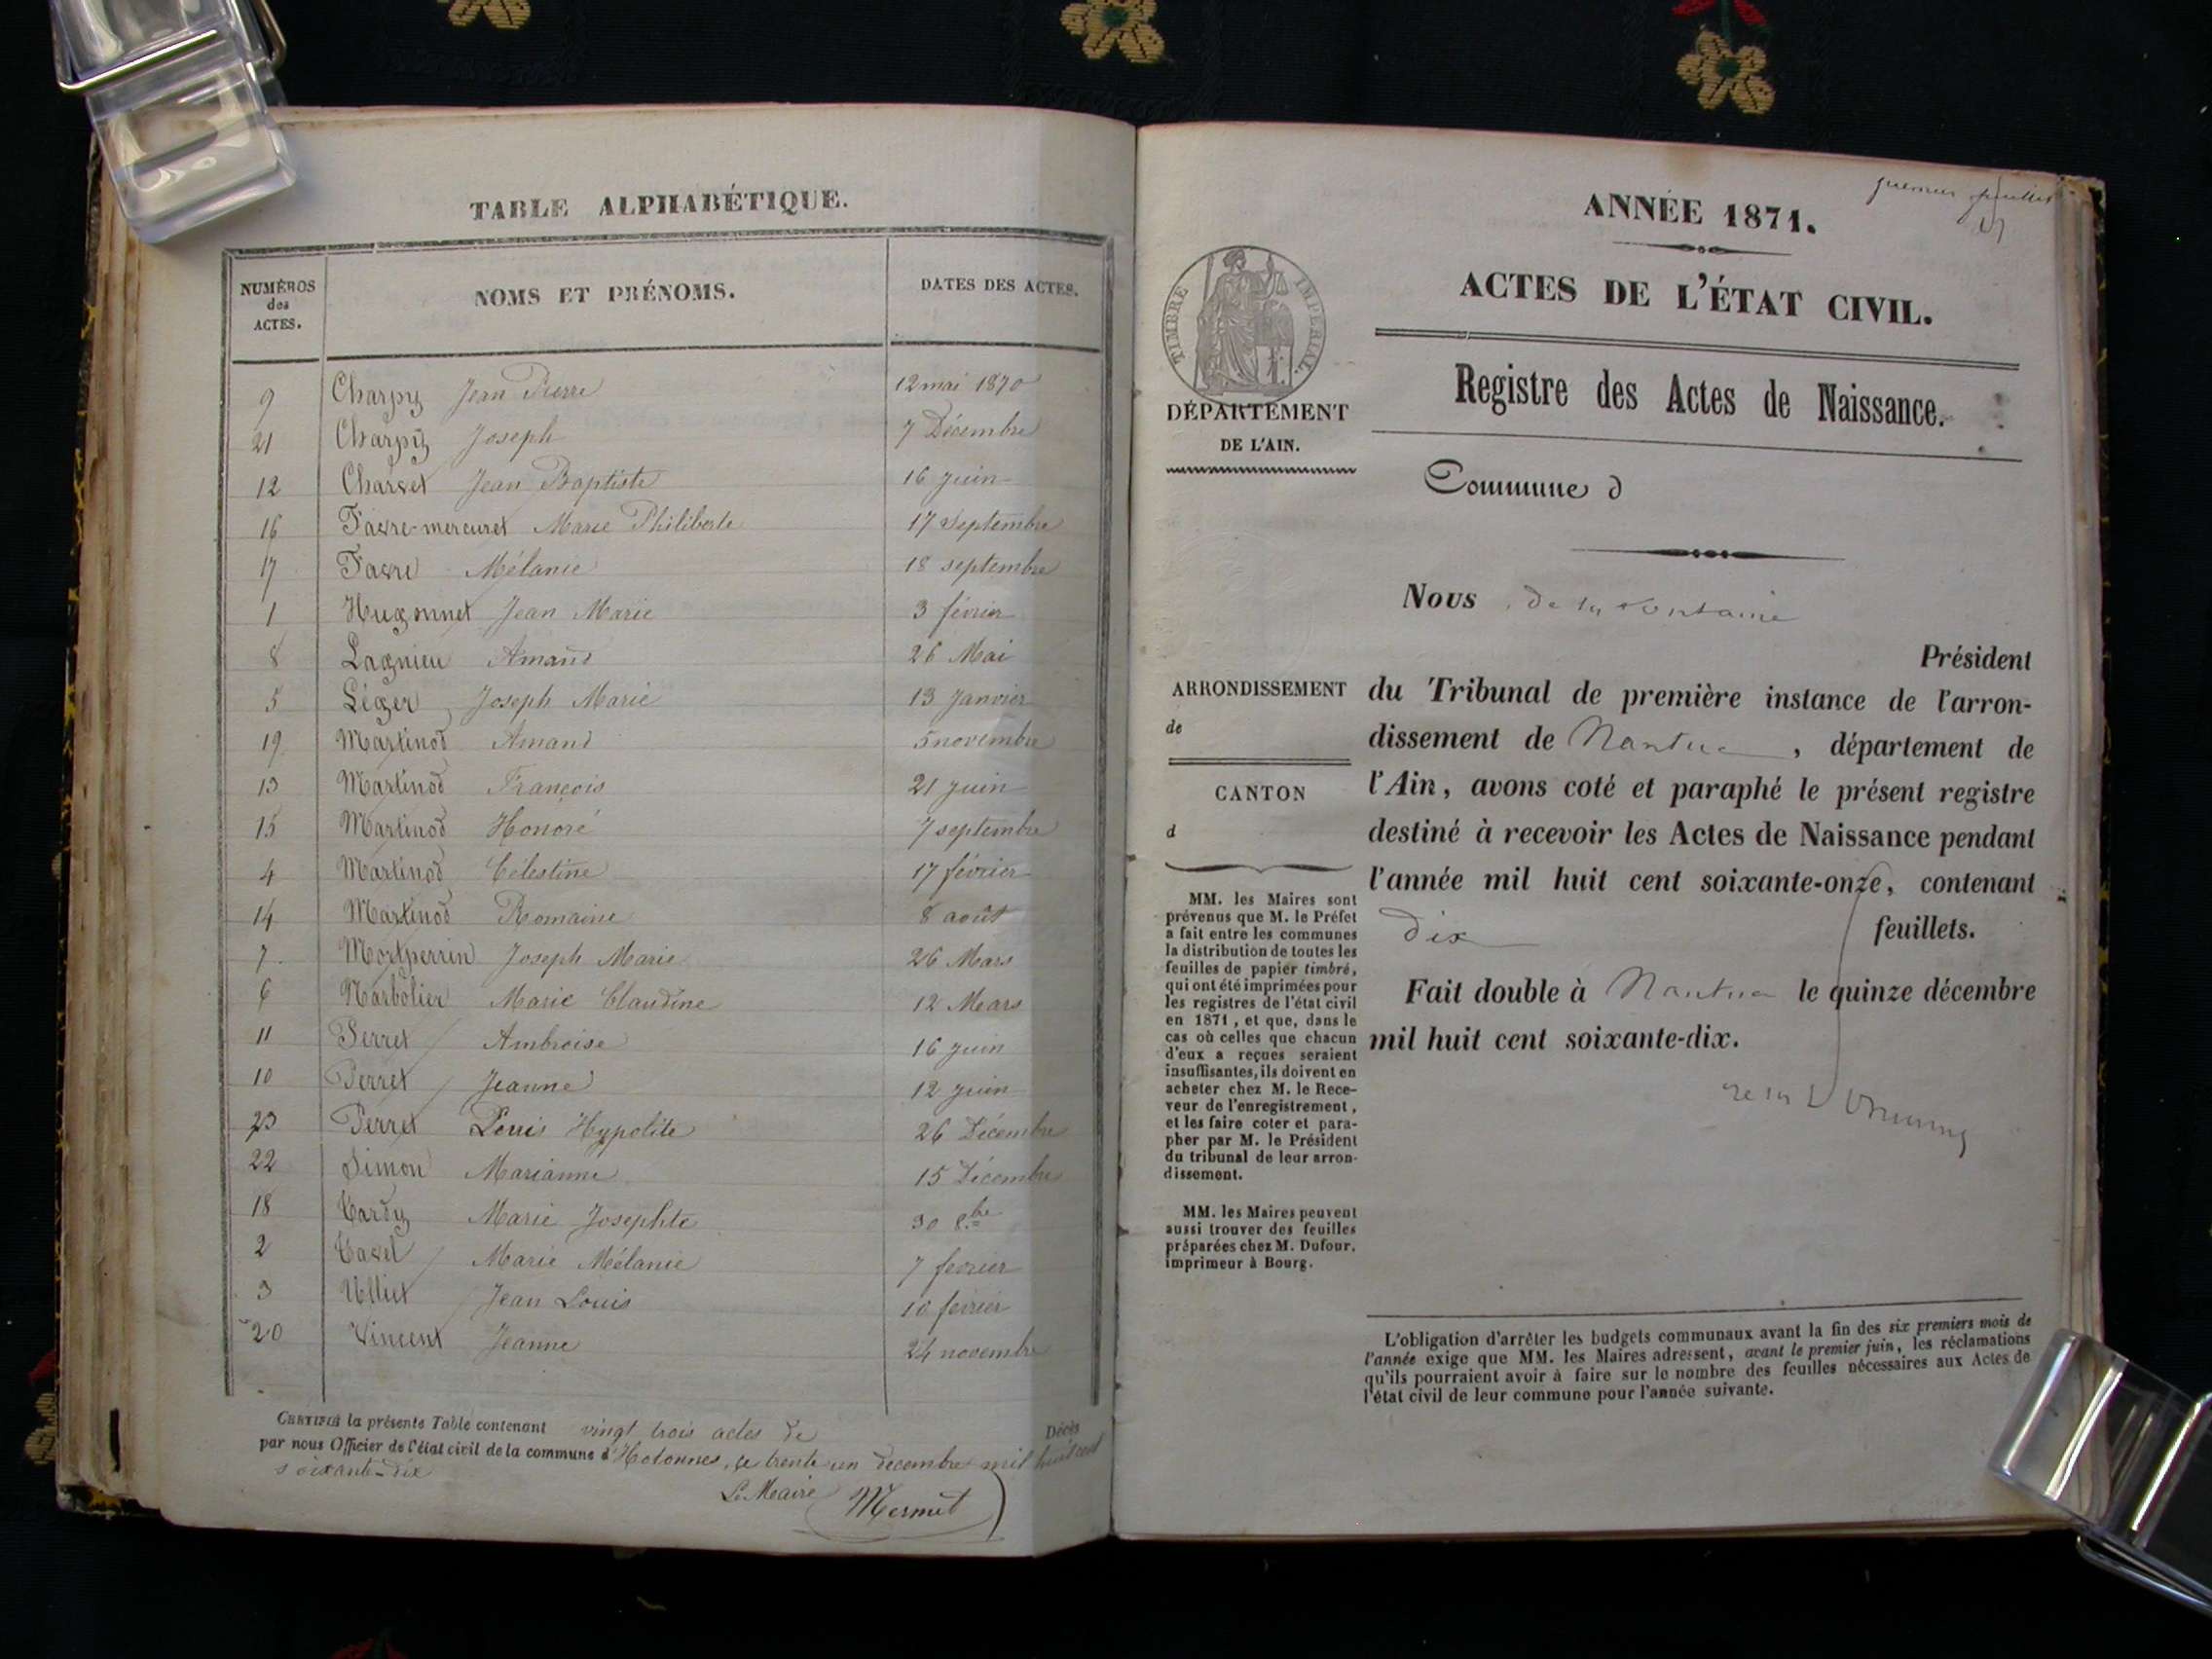 TABLE ALPHABÉTIQUE.
NUMÉROS des ACTES. NOMS ET PRÉNOMS. DATES DES ACTES.
9 Charpy Jean Pierre 12 mai 1870
21 Charpy Joseph 7 Décembre
12 Charvet Jean Baptiste 16 juin
16 Favre-mercuret Marie Philiberte 17 septembre
17 Favre Mélanie 18 septembre
1 Hugonnet Jean Marie 3 février
8 Lagnieu Amand 26 Mai
5 Léger Joseph Marie 13 Janvier
19 Martinod Amand 5 novembre
13 Martinod François 21 juin
15 Martinod Honoré 7 septembre
4 Martinod Célestine 17 février
14 Martinod Romaine 8 août
7 Montperrin Joseph Marie 26 Mars
6 Narbolier Marie Claudine 12 Mars
11 Perret Ambroise 16 juin
10 Perret Jeanne 12 juin
23 Perret Louis Hypolite 26 Décembre
22 Simon Marianne 15 Décembre
18 Tardy Marie Josephte 30 8.bre
2 Tavel Marie Mélanie 7 fevrier
3 Ulliet Jean Louis 10 février
20 Vincent Jeanne 24 novembre
CERTIFIÉ la présente Table contenant vingt trois actes de Décès
par nous Officier de l'état civil de la commune d'Hotonnes, ce trente un decembre mil huit cent
soixante-dix
Le Maire Mermet
premier feuillet
ANNÉE 1871.
ACTES DE L'ÉTAT CIVIL.
TIMBRE IMPÉRIAL.
DÉPARTEMENT
DE L'AIN.
Registre des Actes de Naissance.
Commune d
Nous de la
Président
ARRONDISSEMENT
de
CANTON
d
du Tribunal de première instance de l'arron-
dissement de Nantua, département de
l'Ain, avons coté et paraphé le présent registre
destiné à recevoir les Actes de Naissance pendant
l'année mil huit cent soixante-onze, contenant
dix feuillets.
Fait double à Nantua le quinze décembre
mil huit cent soixante-dix.
MM. les Maires sont
prévenus que M. le Préfet
a fait entre les communes
la distribution de toutes les
feuilles de papier timbré,
qui ont été imprimées pour
les registres de l'état civil
en 1871, et que, dans le
cas où celles que chacun
d'eux a reçues seraient
insuffisantes, ils doivent en
acheter chez M. le Rece-
veur de l'enregistrement,
et les faire coter et para-
pher par M. le Président
du tribunal de leur arron-
dissement.
MM. les Maires peuvent
aussi trouver des feuilles
préparées chez M. Dufour,
imprimeur à Bourg.
L'obligation d'arrêter les budgets communaux avant la fin des six premiers mois de
l'année exige que MM. les Maires adressent, avant le premier juin, les réclamations
qu'ils pourraient avoir à faire sur le nombre des feuilles nécessaires aux Actes de
l'état civil de leur commune pour l'année suivante.